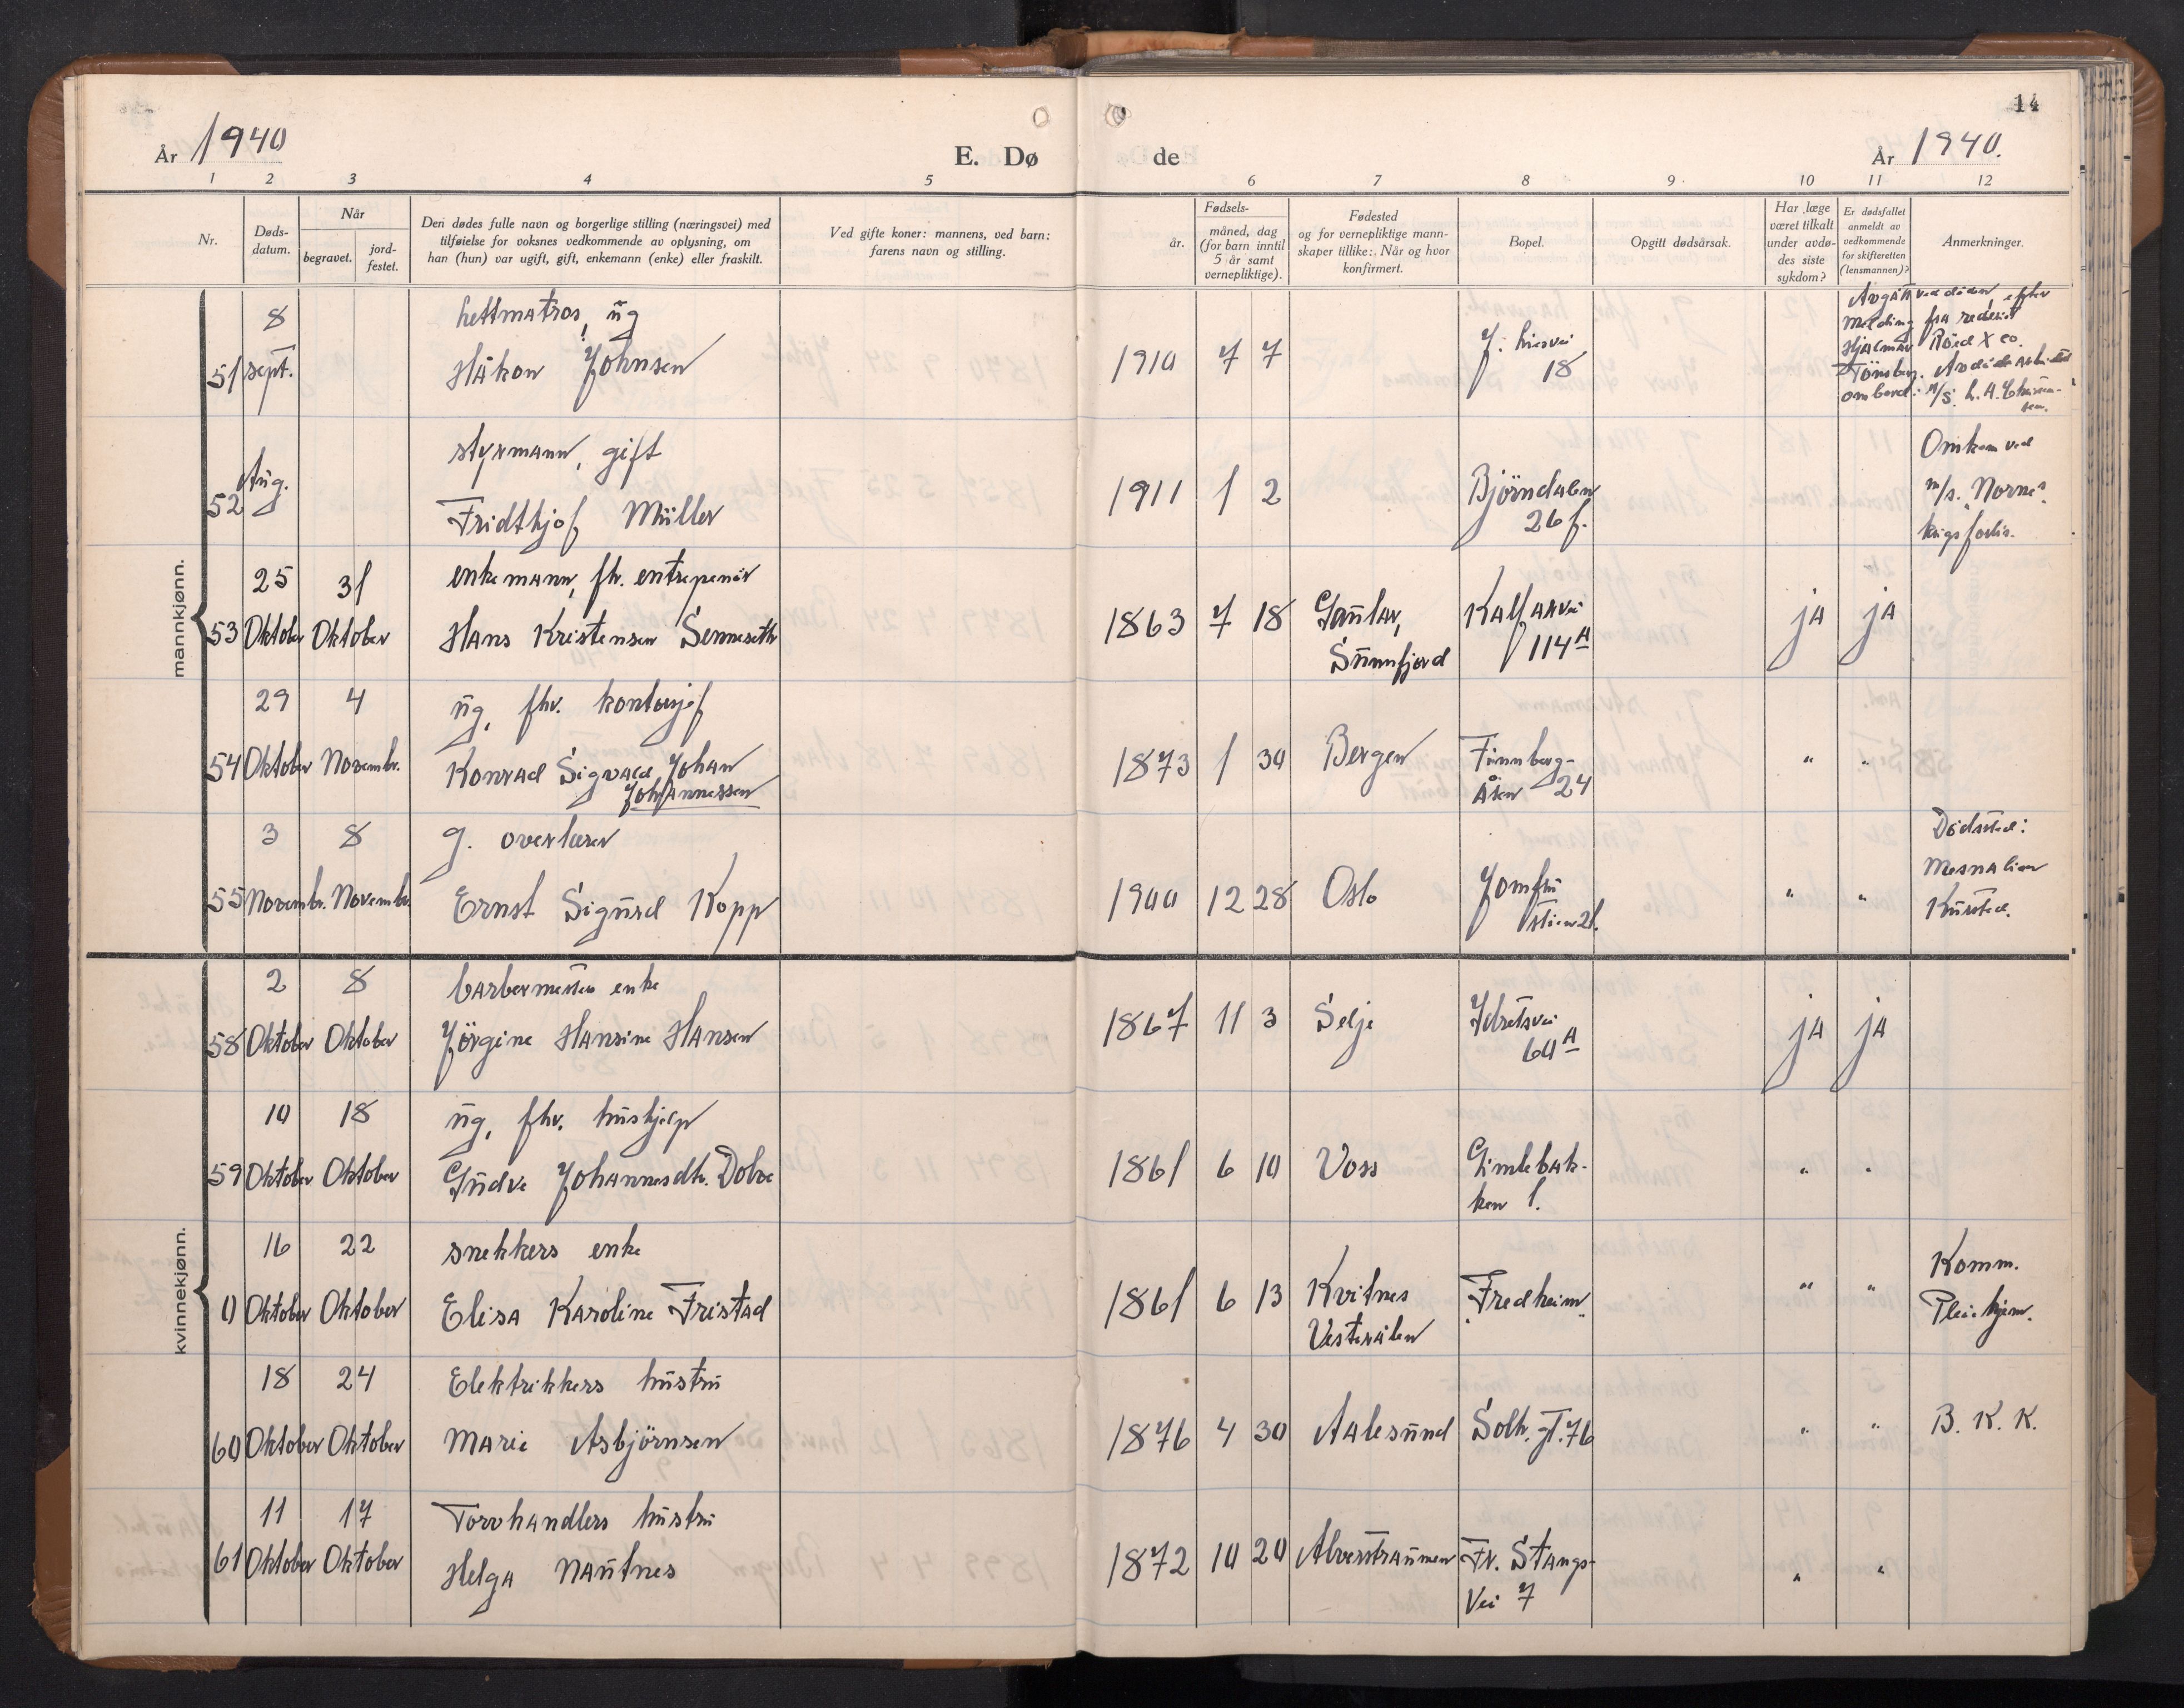 14
År 1940
E. Dø de
År 1940.
1 2 3 4 5 6 7 8 9 10 11 12
Nr.
Døds-
datum.
Når
begravet.
jord-
festet.
Den dødes fulle navn og borgerlige stilling (næringsvei) med
tilføielse for voksnes vedkommende av oplysning, om
han (hun) var ugift, gift, enkemann (enke) eller fraskilt.
Ved gifte koner: mannens, ved barn:
farens navn og stilling.
Fødsels-
år.
måned, dag
(for barn inntil
5 år samt
vernepliktige).
Fødested
og for vernepliktige mann-
skaper tillike: Når og hvor
konfirmert.
Bopel.
Opgitt dødsårsak.
Har læge
været tilkalt
under avdø-
des siste
sykdom?
Er dødsfallet
anmeldt av
vedkommende
for skifteretten
(lensmannen)?
Anmerkninger.
mannkjønn.
8 lettmatros, ug
51 sept. Håkon Johnsen 1910 7 7
18
Avgått ved døden, efter
melding fra rederiet
Hjalmar Röed & Co.
Tönsberg.
ombord: M/S. L. A. Christen-
sen.
styrmann, gift
52 Aug. Fridthjof Müller 1911 1 2 Björndalen
26 f.
Omkom ved
m/s. "Norne".
krigsforlis.
25 31 enkemann, fh. entrepenör
53 Oktober Oktober Hans Kristensen Senneseth 1863 7 18 Gaular, Kalfarvei ja ja
Sunnfjord 114A
29 4 ug, fhv. kontorsjef
54 Oktober Novembr. Konrad Sigvald Johan 1873 1 30 Bergen Finnberg- " "
Johannessen åsen 24
3 8 g. overlærer
55 Novembr. Novembr. Ernst Sigurd Kopp 1900 12 28 Oslo Jomfru " "
stien 21.
Dödssted:
Mesnalien
Kursted.
kvinnekjønn.
2 8 barbermesters enke
58 Oktober Oktober Jörgine Hansine Hansen 1867 11 3 Selje Idretsvei ja ja
60A
10 18 ug, fhv. hushjelp
59 Oktober Oktober Gudve Johannesdtr. Dolve 1861 6 10 Voss Gimlebak- " "
ken 1.
16 22 snekkers enke
0 Oktober Oktober Elisa Karoline Fristad 1861 6 13 Kvitnes "Fredheim" " "
Vesterålen
Komm.
Pleiehjem.
18 24 Elektrikkers hustru
60 Oktober Oktober Marie Asbjörnsen 1876 4 30 Aalesund Solh. gt. 76 " " B. K. K.
11 17 Torvhandlers hustru
61 Oktober Oktober Helga Nautnes 1872 10 20 Alverstraumen Fr. Stangs- " "
Vei 7